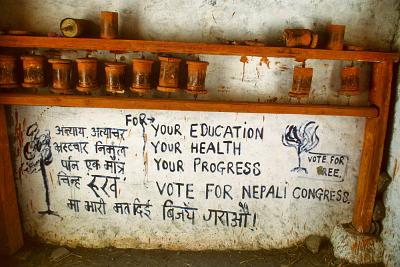 अन्याय, अत्याचार
भ्रस्टचार निर्मुल
पार्न एक मात्र
चिन्ह रुख
मा भारी मत दिई बिजय गराऔं!
FOR → YOUR EDUCATION
YOUR HEALTH
YOUR PROGRESS
VOTE FOR NEPALI CONGRESS.
VOTE FOR
TREE.